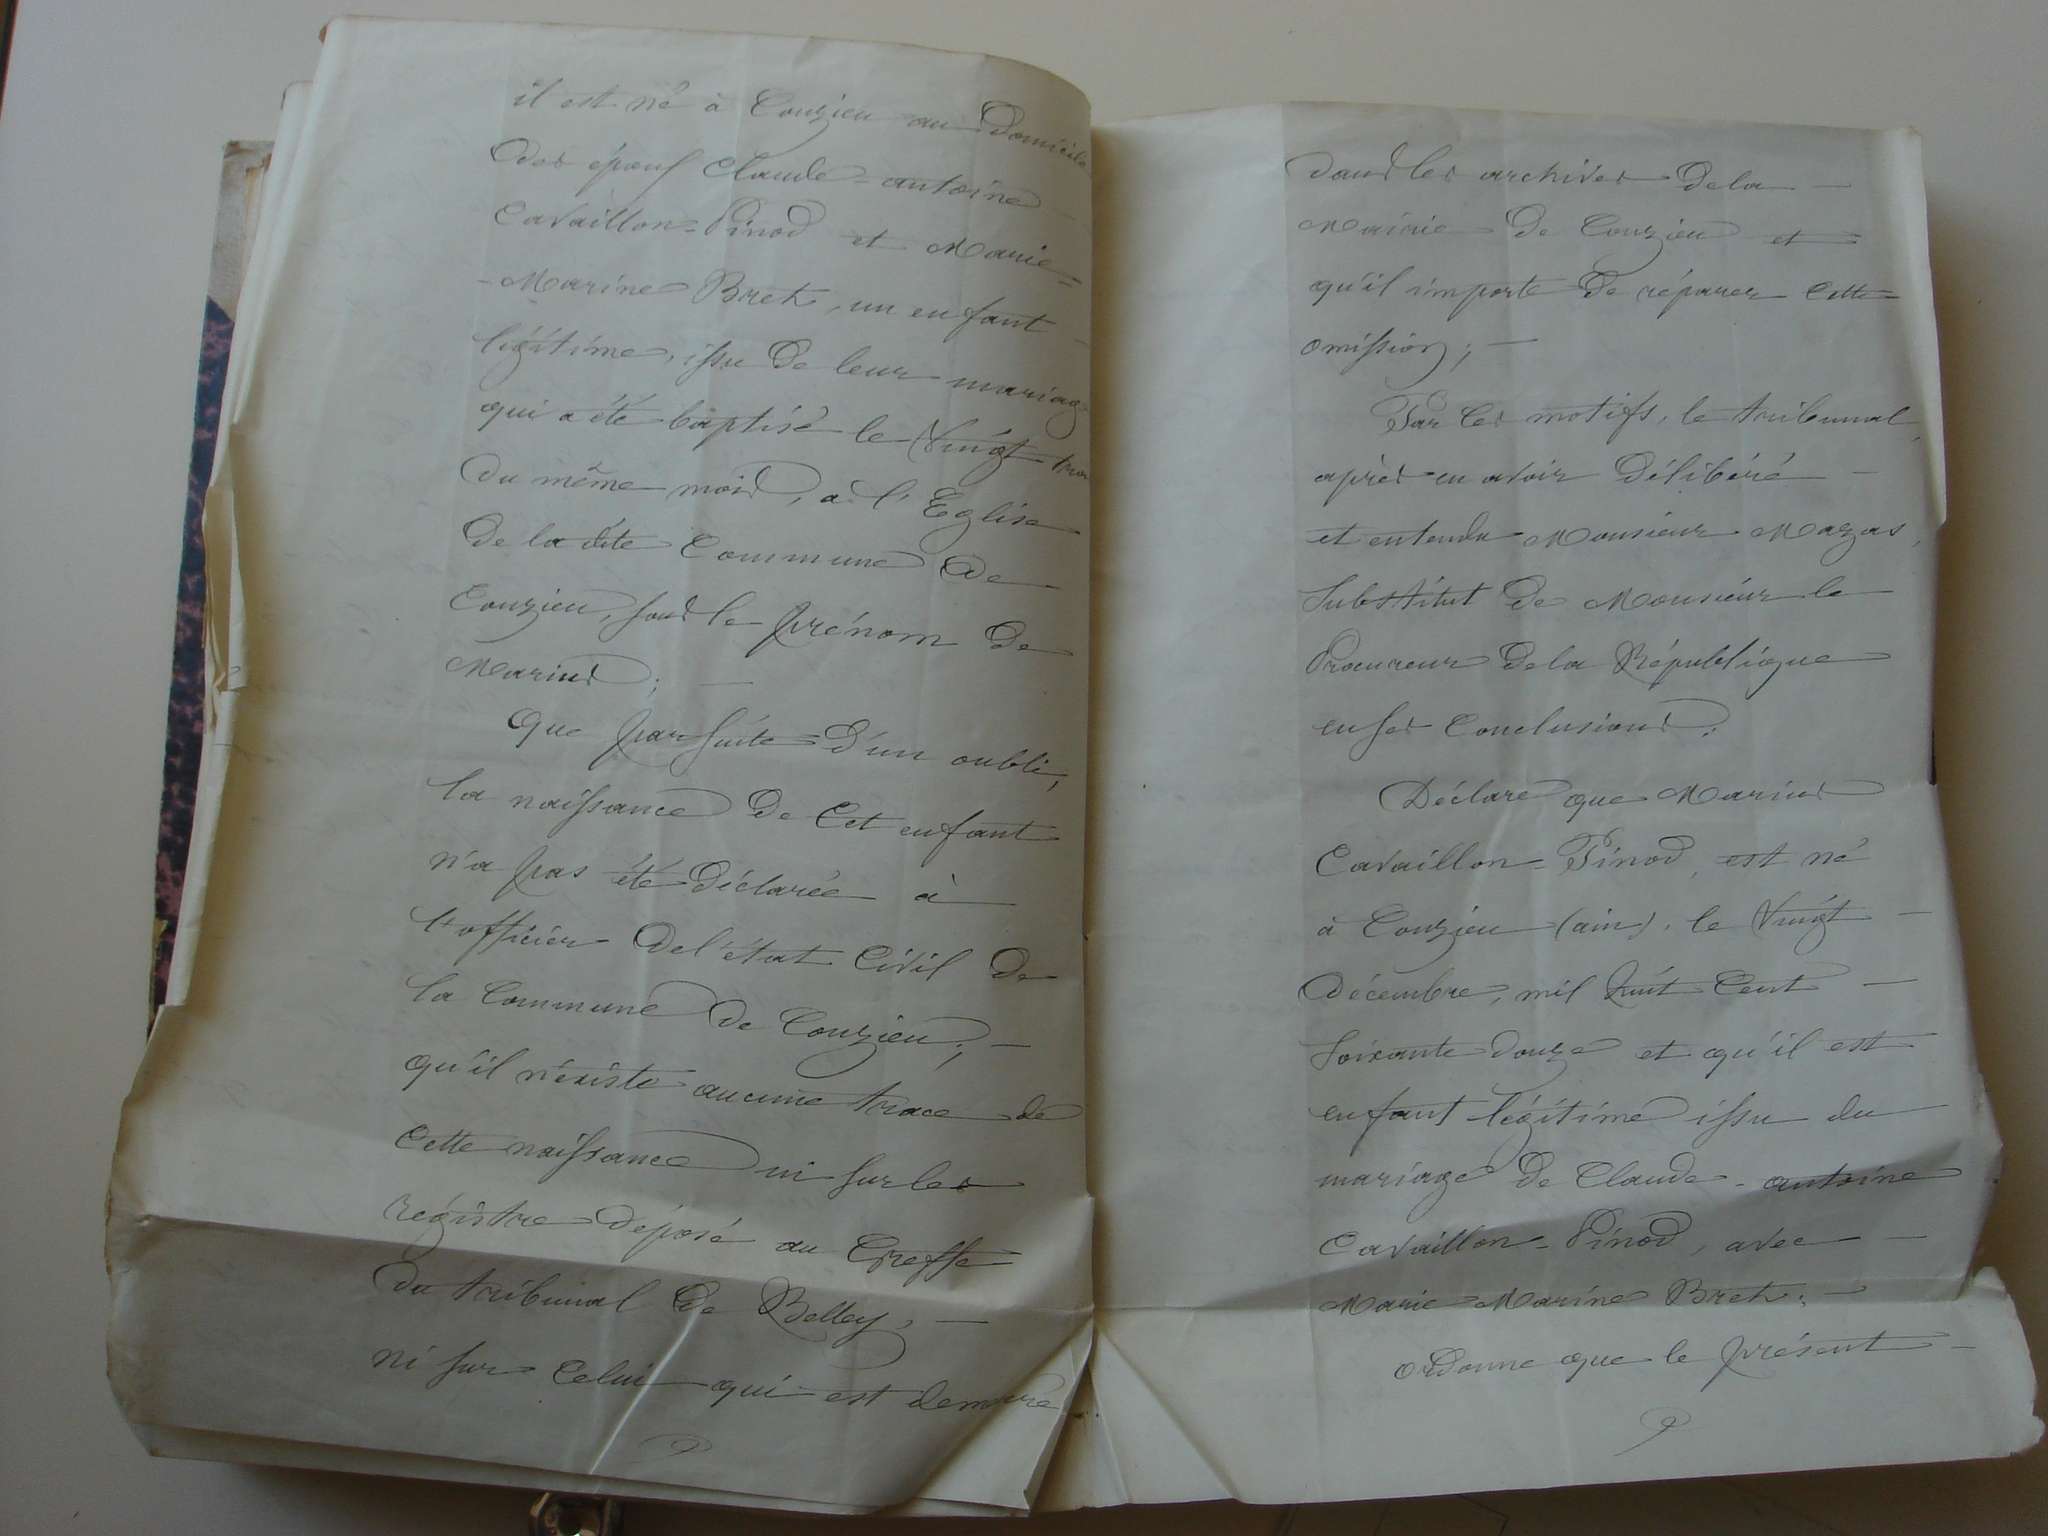 il est né à Conzieu au Domicile
des époux Claude-antoine
Cavaillon-Pinod et Marie-
-Marine Bret, un enfant
légitime, issu de leur mariage
qui a été baptisé le Vingt trois
du même mois, à l'Eglise
de la dite Commune de
Conzieu, sous le prénom de
Marius; —
Que par suite d'un oubli,
la naissance de cet enfant
n'a pas été Déclarée à
l'officier de l'état Civil de
la Commune de Conzieu; —
qu'il n'existe aucune trace de
cette naissance ni sur les
registre déposé au Greffe
du tribunal de Belley, —
ni sur celui qui est demeuré
dans les archives de la —
Mairie de Conzieu et
qu'il importe de réparer cette
omission; —
Par ces motifs, le tribunal,
après en avoir Délibéré —
et entendu Monsieur Mazas,
Substitut de Monsieur le
Procureur de la République
en ses Conclusions;
Déclare que Marius
Cavaillon-Pinod, est né
à Conzieu (ain), le Vingt —
Décembre, mil huit Cent —
soixante douze et qu'il est
enfant légitime issu du
mariage de Claude-antoine
Cavaillon-Pinod, avec —
Marie Marine Bret; —
Ordonne que le présent —